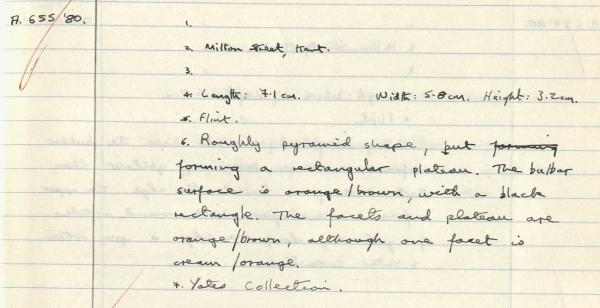 A. 655 '80.
1.
2. Milton Street, Kent.
3.
4. Length: 7.1 cm. Width: 5.8cm. Height: 3.2cm.
5. Flint.
6. Roughly pyramid shape, but forming
forming a rectangular plateau. The bulbar
surface is orange/brown, with a black
rectangle. The facets and plateau are
orange/brown, although one facet is
cream/orange.
7. Yates Collection.